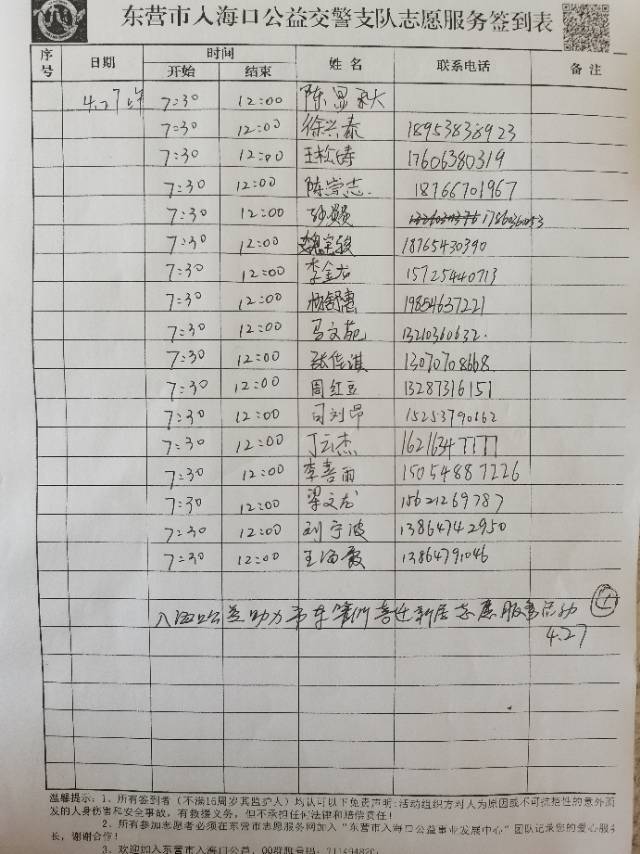 东营市入海口公益交警支队志愿服务签到表
序号 日期 时间 姓名 联系电话 备注
开始 结束
4.27 7:30 12:00 陈显
7:30 12:00 徐兴泰 18953838923
7:30 12:00 王松涛 17606380319
7:30 12:00 陈崇志 18766701967
7:30 12:00
7:30 12:00 魏 18765430390
7:30 12:00 李金龙 15725440713
7:30 12:00 杨舒惠 19854637221
7:30 12:00 马文苑 13210360632
7:30 12:00 张佳淇 13070708668
7:30 12:00 周红豆 13287316151
7:30 12:00 司刘昂 15253790162
7:30 12:00 丁云杰 16216347777
7:30 12:00 李喜雨 15054887226
7:30 12:00 梁文龙 15621269787
7:30 12:00 刘宁波 13864742950
7:30 12:00 王海霞 13864791046
入海口公益助力 喜迁新居志愿服务活动 ①
4.27
温馨提示：1、所有签到者（不满16周岁其监护人）均认可以下免责声明:活动组织方对人为原因或不可抗拒性的意外引
发的人身伤害和安全事故，有救援义务，但不承担任何法律和赔偿责任！
2、所有参加志愿者必须在东营市志愿服务网加入“东营市入海口公益事业发展中心”团队记录您的爱心服务
长，谢谢合作！
3、欢迎加入东营市入海口公益，QQ群账号码：